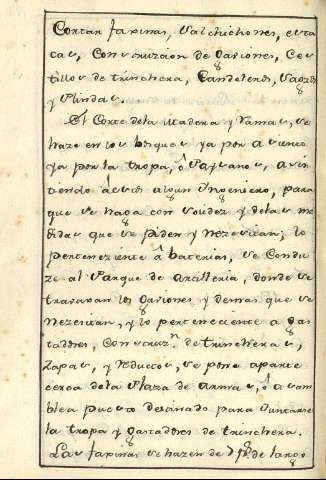 Cortar faxinas, Salchichones, esta
cas, Construcion de Gaviones, Ces
tillos de trinchera, Candeleros, Sacos
y Blindas.
El Corte de la Madera y Ramas, se
haze en los bosques ya por asiento
ya por la tropa, ô Paysanos, asis
tiendo â esto algun Ingeniero, para
que se haga con solidez y de las me
didas que se piden y Nezesitan; lo
perteneziente â baterias, se Condu
ze al Parque de Artilleria, donde se
travaxan los Gaviones y demas que se
Nezesitan, y lo perteneciente a Gas
tadores, Construz.n de trincheras,
Zapas, y Reductos, se pone aparte
cerca de la Plaza de Armas, ô asam
blea puesto destinado para Juntarse
la tropa y Gastadores de trinchera.
Las faxinas se hazen de 7 ps. de largo